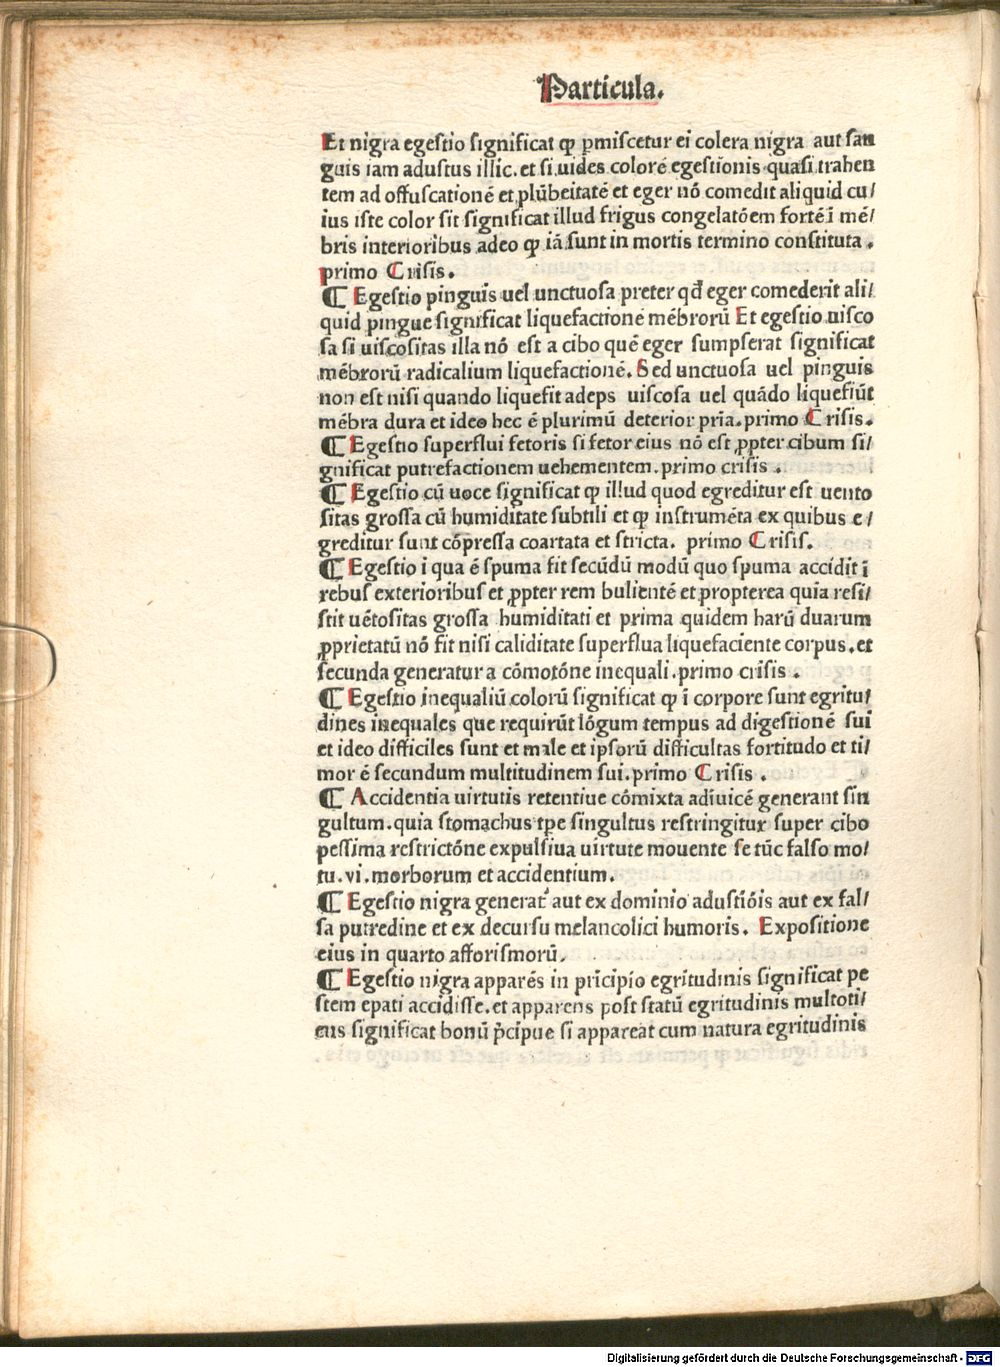 Particula.
Et nigra egestio significat ꝙ ꝑmiscetur ei colera nigra aut san
guis iam adustus illic. et si uides coloré egestionis quasi trahen
tem ad offuscationé et plūbeitaté et eger nó comedit aliquid cu/
ius iste color sit significat illud frigus congelatóem forté ī mé/
bris interioribus adeo ꝙ iā sunt in mortis termino constituta.
primo Crisis.
¶ Egestio pinguis uel unctuosa preter qđ eger comederit ali/
quid pingue significat liquefactioné mébrorū Et egestio uisco
sa si uiscositas illa nó est a cibo qué eger sumpserat significat
mébrorū radicalium liquefactioné. Sed unctuosa uel pinguis
non est nisi quando liquefit adeps uiscosa uel quádo liquefiūt
mébra dura et ideo hec é plurimū deterior pria. primo Crisis.
¶ Egestio superflui fetoris si fetor eius nó est ꝓpter cibum si/
gnificat putrefactionem uehementem. primo crisis.
¶ Egestio cū uoce significat ꝙ illud quod egreditur est uento
sitas grossa cū humiditate subtili et ꝙ instruméta ex quibus e/
greditur sunt cópressa coartata et stricta. primo Crisis.
¶ Egestio ī qua é spuma fit secūdū modū quo spuma accidit ī
rebus exterioribus et ꝓpter rem bulienté et propterea quia resi/
stit uétositas grossa humiditati et prima quidem harū duarum
ꝓprietatū nó fit nisi caliditate superflua liquefaciente corpus. et
secunda generatur a cómotóne inequali. primo crisis.
¶ Egestio inequaliū colorū significat ꝙ ī corpore sunt egritu/
dines inequales que requirūt lógum tempus ad digestioné sui
et ideo difficiles sunt et male et ipsorū difficultas fortitudo et ti/
mor é secundum multitudinem sui. primo Crisis.
¶ Accidentia uirtutis retentiue cómixta adiuicé generant sin
gultum. quia stomachus tpe singultus restringitur super cibo
pessima restrictóne expulsiua uirtute mouente se tūc falso mo/
tu. vi. morborum et accidentium.
¶ Egestio nigra generat᷑ aut ex dominio adustióis aut ex fal/
sa putredine et ex decursu melancolici humoris. Expositione
eius in quarto afforismorū.
¶ Egestio nigra apparés in pricipio egritudinis significat pe
stem epati accidisse. et apparens post statū egritudinis multoti/
ens significat bonū p̄cipue si appareat cum natura egritudinis
Digitalisierung gefördert durch die Deutsche Forschungsgemeinschaft - DFG